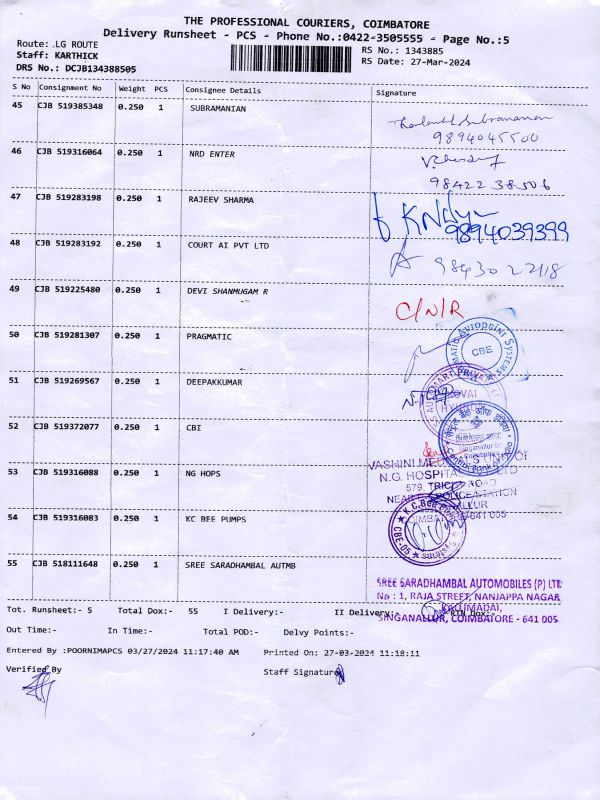 THE PROFESSIONAL COURIERS, COIMBATORE
Delivery Runsheet - PCS - Phone No.:0422-3505555 - Page No.:5
Route: .LG ROUTE
RS No.: 1343885
Staff: KARTHICK
RS Date: 27-Mar-2024
DRS No.: DCJB134388505
S No Consignment No Weight PCS Consignee Details Signature
45 CJB 519385348 0.250 1 SUBRAMANIAN
9894045500
46 CJB 519316064 0.250 1 NRD ENTER
98422 38506
47 CJB 519283198 0.250 1 RAJEEV SHARMA
9894039399
48 CJB 519283192 0.250 1 COURT AI PVT LTD
98430 22118
49 CJB 519225480 0.250 1 DEVI SHANMUGAM R
C/N/R
50 CJB 519281307 0.250 1 PRAGMATIC
CBE
51 CJB 519269567 0.250 1 DEEPAKKUMAR
52 CJB 519372077 0.250 1 CBI
53 CJB 519316088 0.250 1 NG HOPS
N.G. HOSPITAL
579, TRICHY ROAD
54 CJB 519316083 0.250 1 KC BEE PUMPS
K.C.Bee
CBE-05
55 CJB 518111648 0.250 1 SREE SARADHAMBAL AUTMB
SREE SARADHAMBAL AUTOMOBILES (P) LTD
No : 1, RAJA STREET, NANJAPPA NAGAR
SINGANALLUR, COIMBATORE - 641 005
Tot. Runsheet:- 5 Total Dox:- 55 I Delivery:- II Delivery:- RTN Dox:-
Out Time:- In Time:- Total POD:- Delvy Points:-
Entered By :POORNIMAPCS 03/27/2024 11:17:40 AM Printed On: 27-03-2024 11:18:11
Verified By Staff Signature